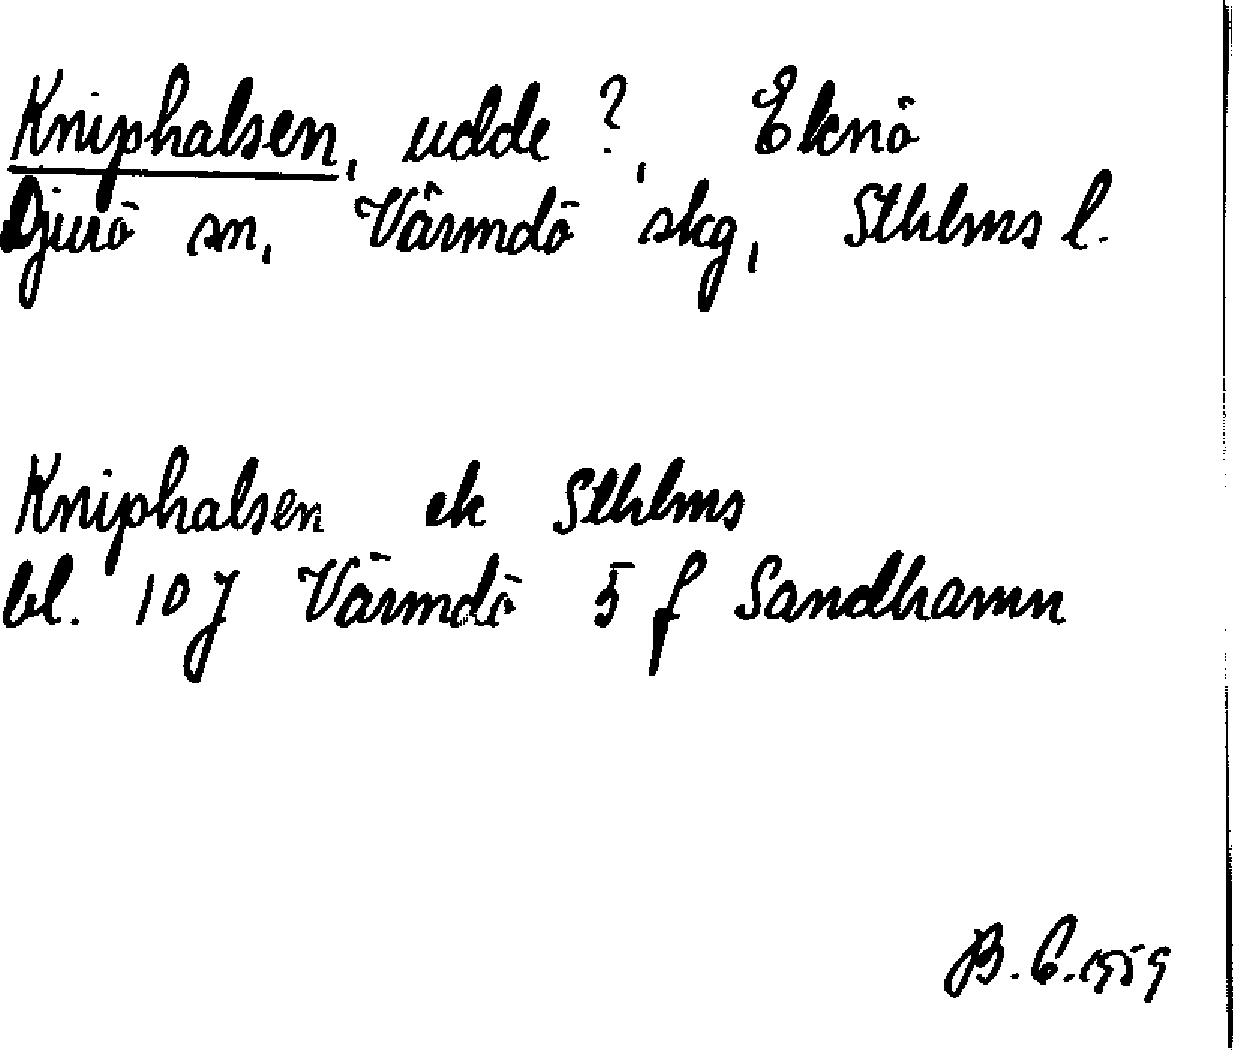 Kniphalsen, udde ?, Eknö
Djurö sn, Värmdö skg, Sthlms l.
Kniphalsen ek Sthlms
bl. 10 J Värmdö 5 f Sandhamn
B. C. 1959